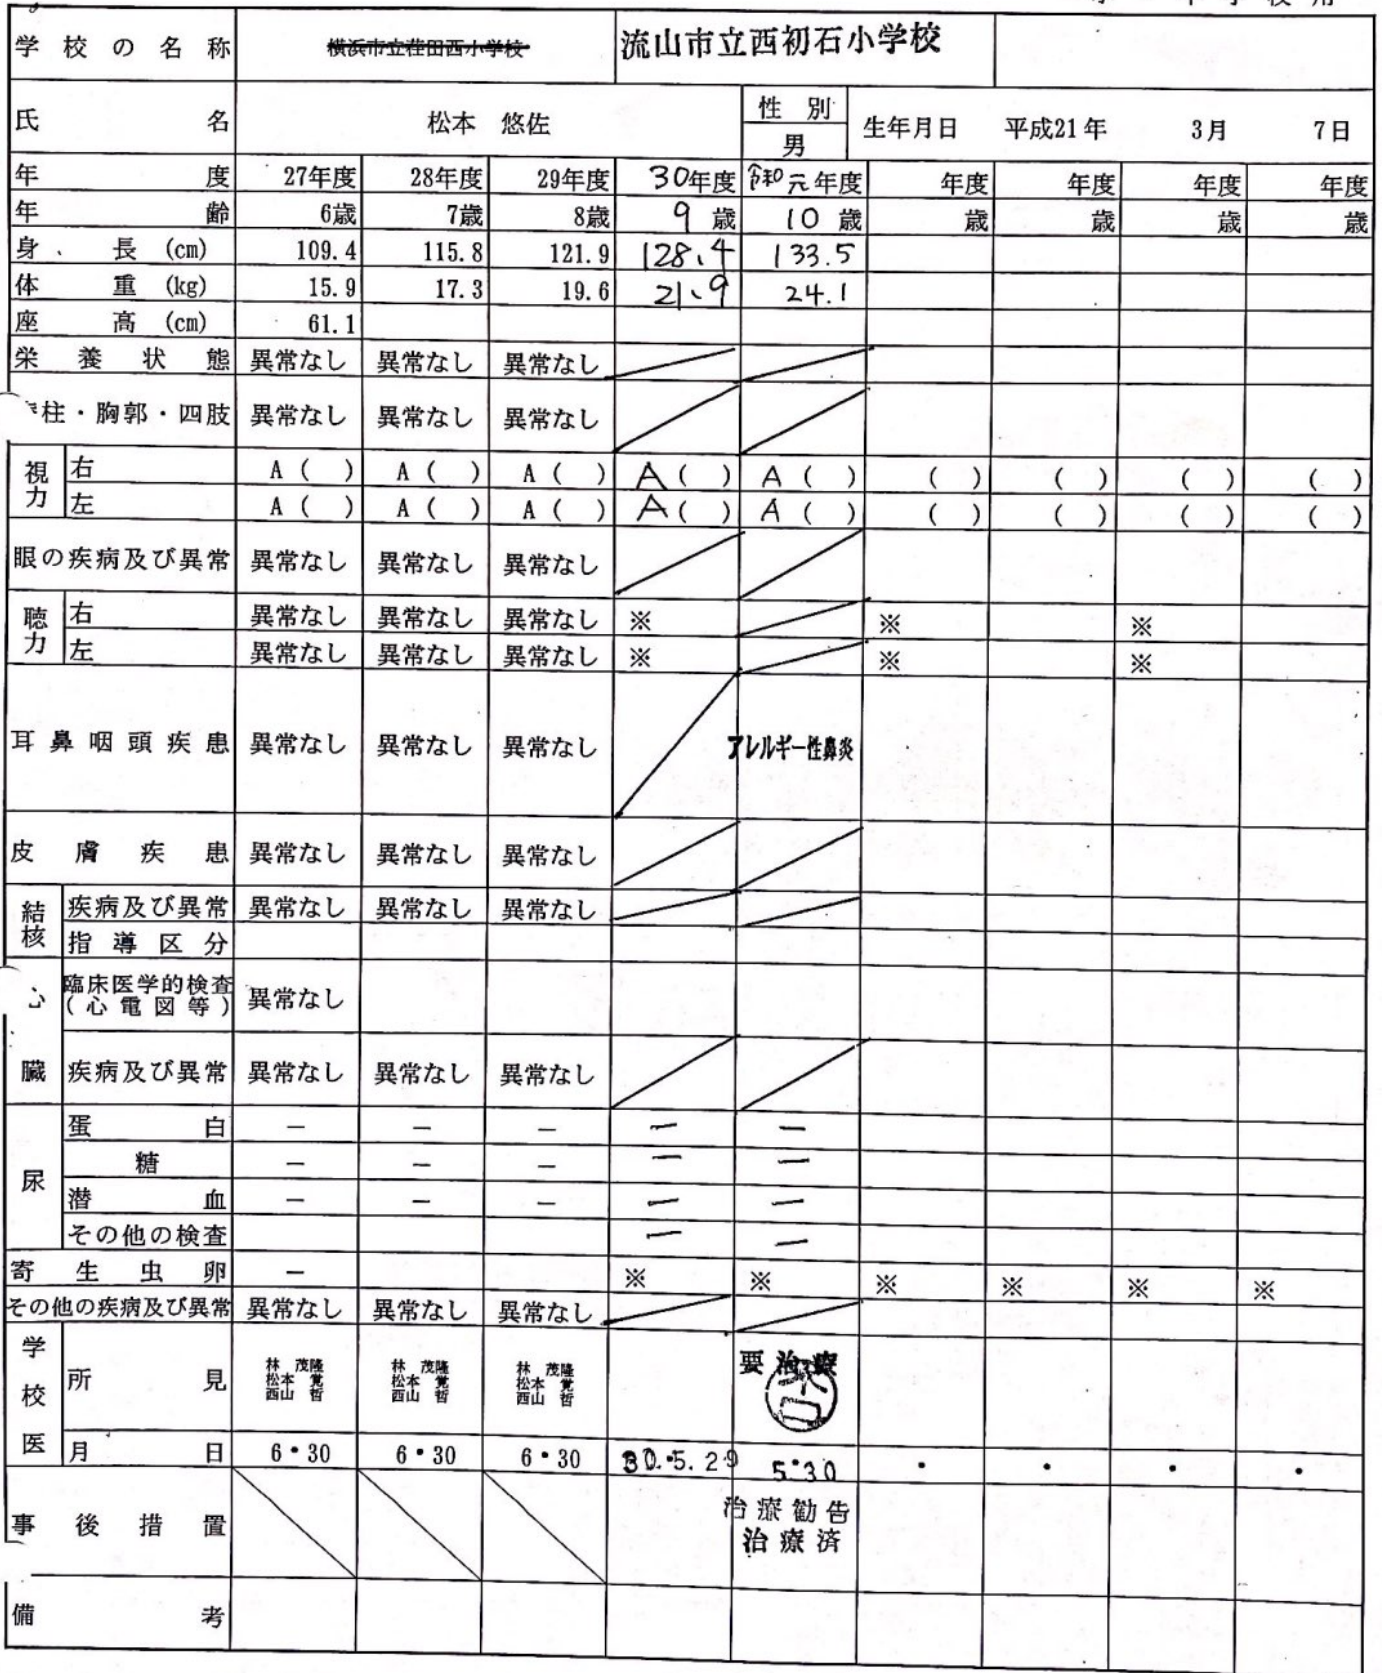 学校の名称 横浜市立荏田西小学校 流山市立西初石小学校
氏名 松本 悠佐 性別 男 生年月日 平成21年 3月 7日
年度 27年度 28年度 29年度 30年度 令和元年度 年度 年度 年度 年度
年齢 6歳 7歳 8歳 9歳 10歳 歳 歳 歳 歳
身長 (cm) 109.4 115.8 121.9 128.4 133.5
体重 (kg) 15.9 17.3 19.6 21.9 24.1
座高 (cm) 61.1
栄養状態 異常なし 異常なし 異常なし
柱・胸郭・四肢 異常なし 異常なし 異常なし
視力 右 A ( ) A ( ) A ( ) A ( ) A ( ) ( ) ( ) ( ) ( )
左 A ( ) A ( ) A ( ) A ( ) A ( ) ( ) ( ) ( ) ( )
眼の疾病及び異常 異常なし 異常なし 異常なし
聴力 右 異常なし 異常なし 異常なし ※ ※ ※
左 異常なし 異常なし 異常なし ※ ※ ※
耳鼻咽頭疾患 異常なし 異常なし 異常なし アレルギー性鼻炎
皮膚疾患 異常なし 異常なし 異常なし
結核 疾病及び異常 異常なし 異常なし 異常なし
指導区分
心臓 臨床医学的検査 (心電図等) 異常なし
疾病及び異常 異常なし 異常なし 異常なし
尿 蛋白 － － － － －
糖 － － － － －
潜血 － － － － －
その他の検査 － －
寄生虫卵 － ※ ※ ※ ※ ※ ※
その他の疾病及び異常 異常なし 異常なし 異常なし
学校医 所見 林 茂隆 松本 覚 西山 哲 林 茂隆 松本 覚 西山 哲 林 茂隆 松本 覚 西山 哲 要治療
月日 6・30 6・30 6・30 30.5.29 5・30 ・ ・ ・ ・
事後措置 治療勧告
治療済
備考